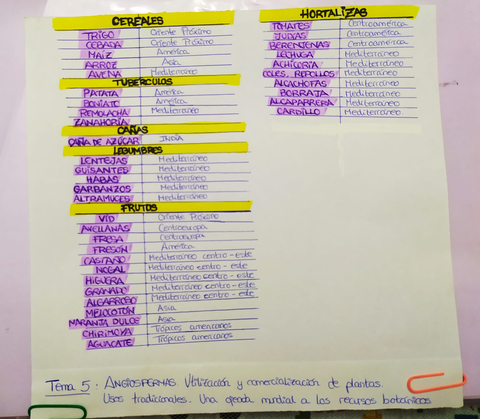 CEREALES
TRIGO Oriente Próximo
CEBADA Oriente Próximo
MAÍZ América
ARROZ Asia
AVENA Mediterráneo
TUBERCULOS
PATATA América
BONIATO América
REMOLACHA Mediterráneo
ZANAHORIA
CAÑAS
CAÑA DE AZÚCAR INDIA
LEGUMBRES
LENTEJAS Mediterráneo
GUISANTES Mediterráneo
HABAS Mediterráneo
GARBANZOS Mediterráneo
ALTRAMUCES Mediterráneo
FRUTOS
VID Oriente Próximo
AVELLANAS Centroeuropa
FRESA Centroeuropa
FRESÓN América
CASTAÑO Mediterráneo centro-este
NOGAL Mediterráneo centro-este
HIGUERA Mediterráneo centro-este
GRANADO Mediterráneo centro-este
ALGARROBO Mediterráneo centro-este
MELOCOTÓN Asia
NARANJA DULCE Asia
CHIRIMOYA Trópicos americanos
AGUACATE Trópicos americanos
HORTALIZAS
TOMATES Centroamérica
JUDIAS Centroamérica
BERENJENAS Centroamérica
LECHUGA Mediterráneo
ACHICORIA Mediterráneo
COLES, REPOLLOS Mediterráneo
ALCACHOFAS Mediterráneo
BORRAJA Mediterráneo
ALCAPARRERA Mediterráneo
CARDILLO Mediterráneo
Tema 5: ANGIOSPERMAS. Utilización y comercialización de plantas.
Usos tradicionales. Una ojeada mundial a los recursos botánicos